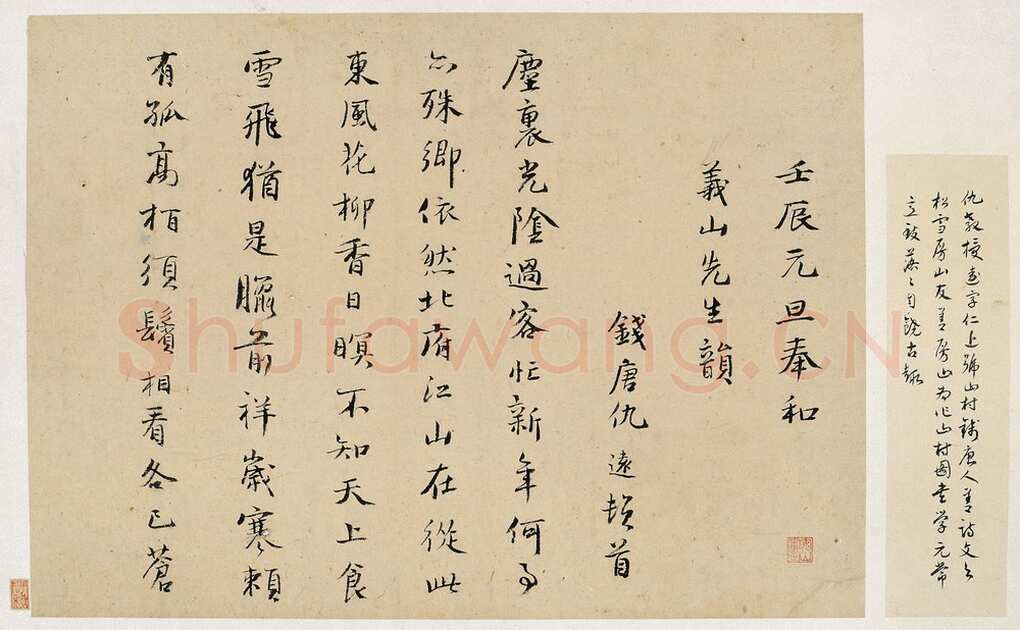 仇教授遠字仁上號山村錢唐人善詩文與
松雪房山友善房山為作山村圖書學元常
立致落〻自饒古趣
壬辰元旦奉和
義山先生韻
錢唐仇遠頓首
塵裏光陰過客忙新年何事
亦殊鄉依然北府江山在從此
東風花柳香日暝不知天上食
雪飛猶是臘前祥歲寒賴
有孤高栢須鬢相看各已蒼
Shufawang.CN